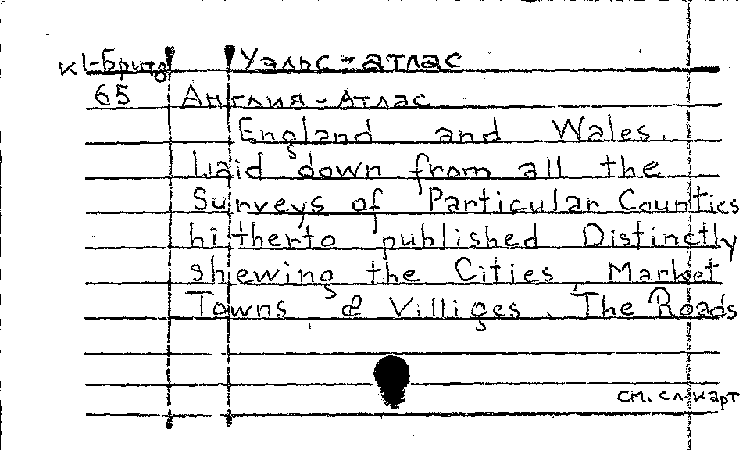 К1-Брита Уэльс-атлас
65 Англия-Атлас
England and Wales.
Laid down from all the
Surveys of Particular Counties
hitherto published Distinctly
shewing the Cities, Market
Towns & Villiges. The Roads
см. сл. карт